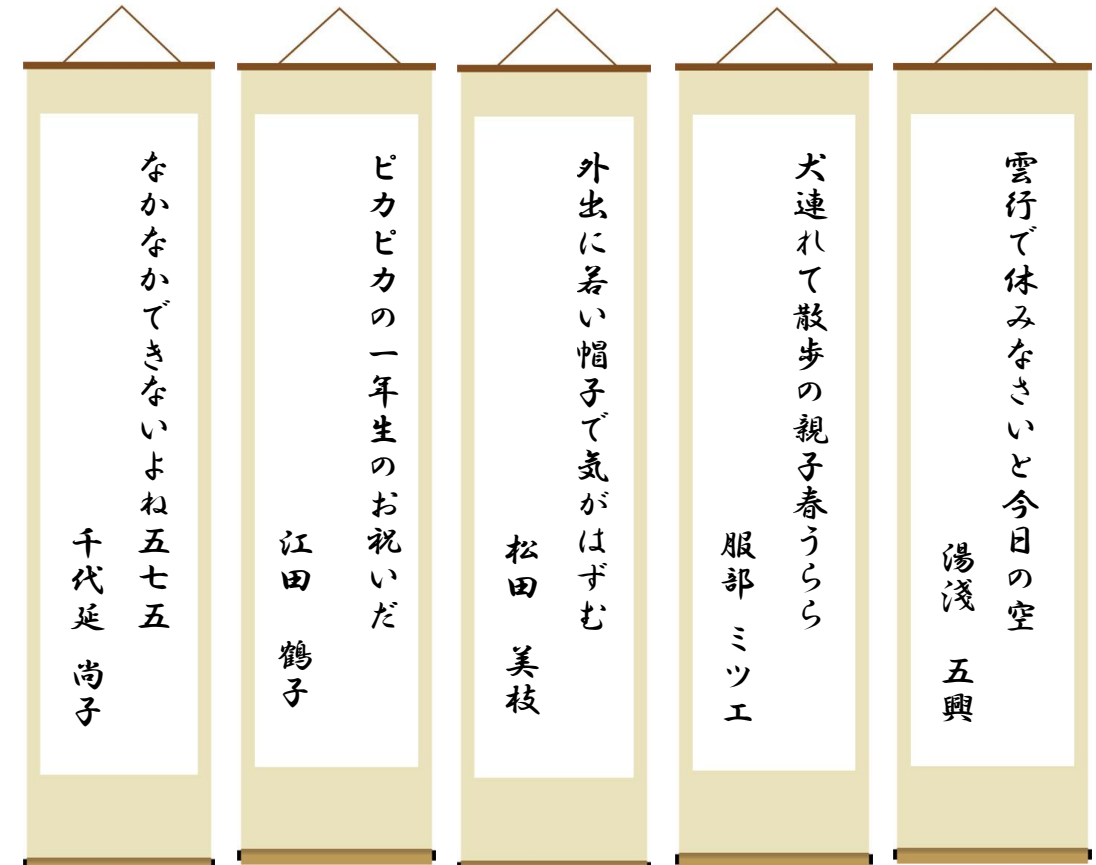 雲行で休みなさいと今日の空
湯淺　五興
犬連れて散歩の親子春うらら
服部 ミツエ
外出に若い帽子で気がはずむ
松田　美枝
ピカピカの一年生のお祝いだ
江田　鶴子
なかなかできないよね五七五
千代延 尚子